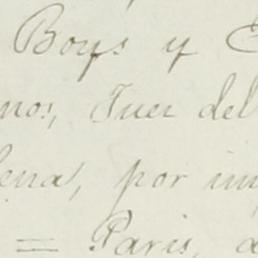 Boys y
nos, Juez del
lena, por im
= Paris, a